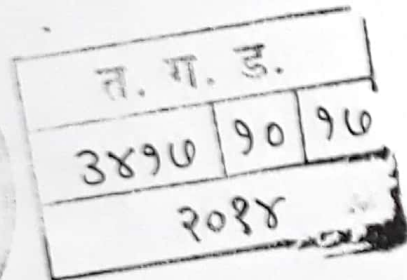 त. ग. ड.
३४१७ १० १७
२०१४